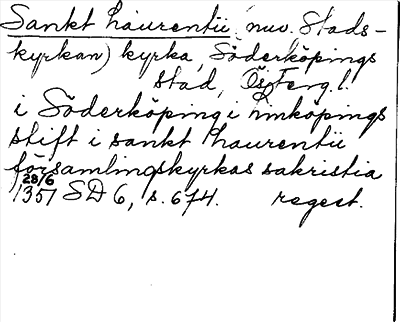 Sankt Laurentii (nuv. Stads-
kyrkan) kyrka, Söderköpings
stad, Österg. l.
i Söderköping i Linköpings
stift i sankt Laurentii
församlingskyrkas sakristia
28/6
1351 SD 6, s. 674. regest.